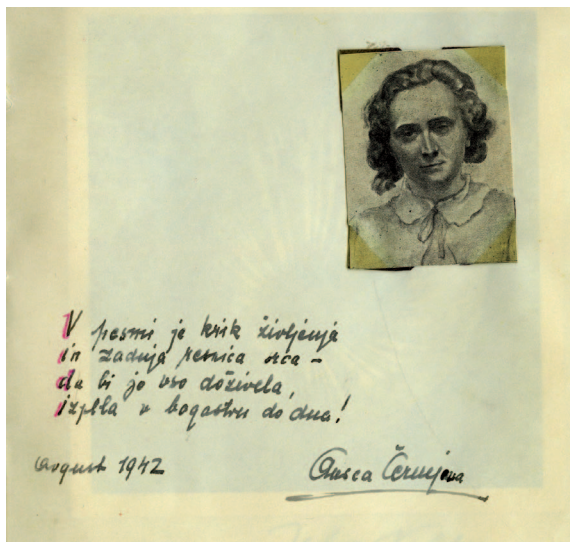 V pesmi je krik življenja
in zadnja resnica srca –
da bi jo vso doživela,
izpila v bogastvu do dna!
Avgust 1942
Černejeva